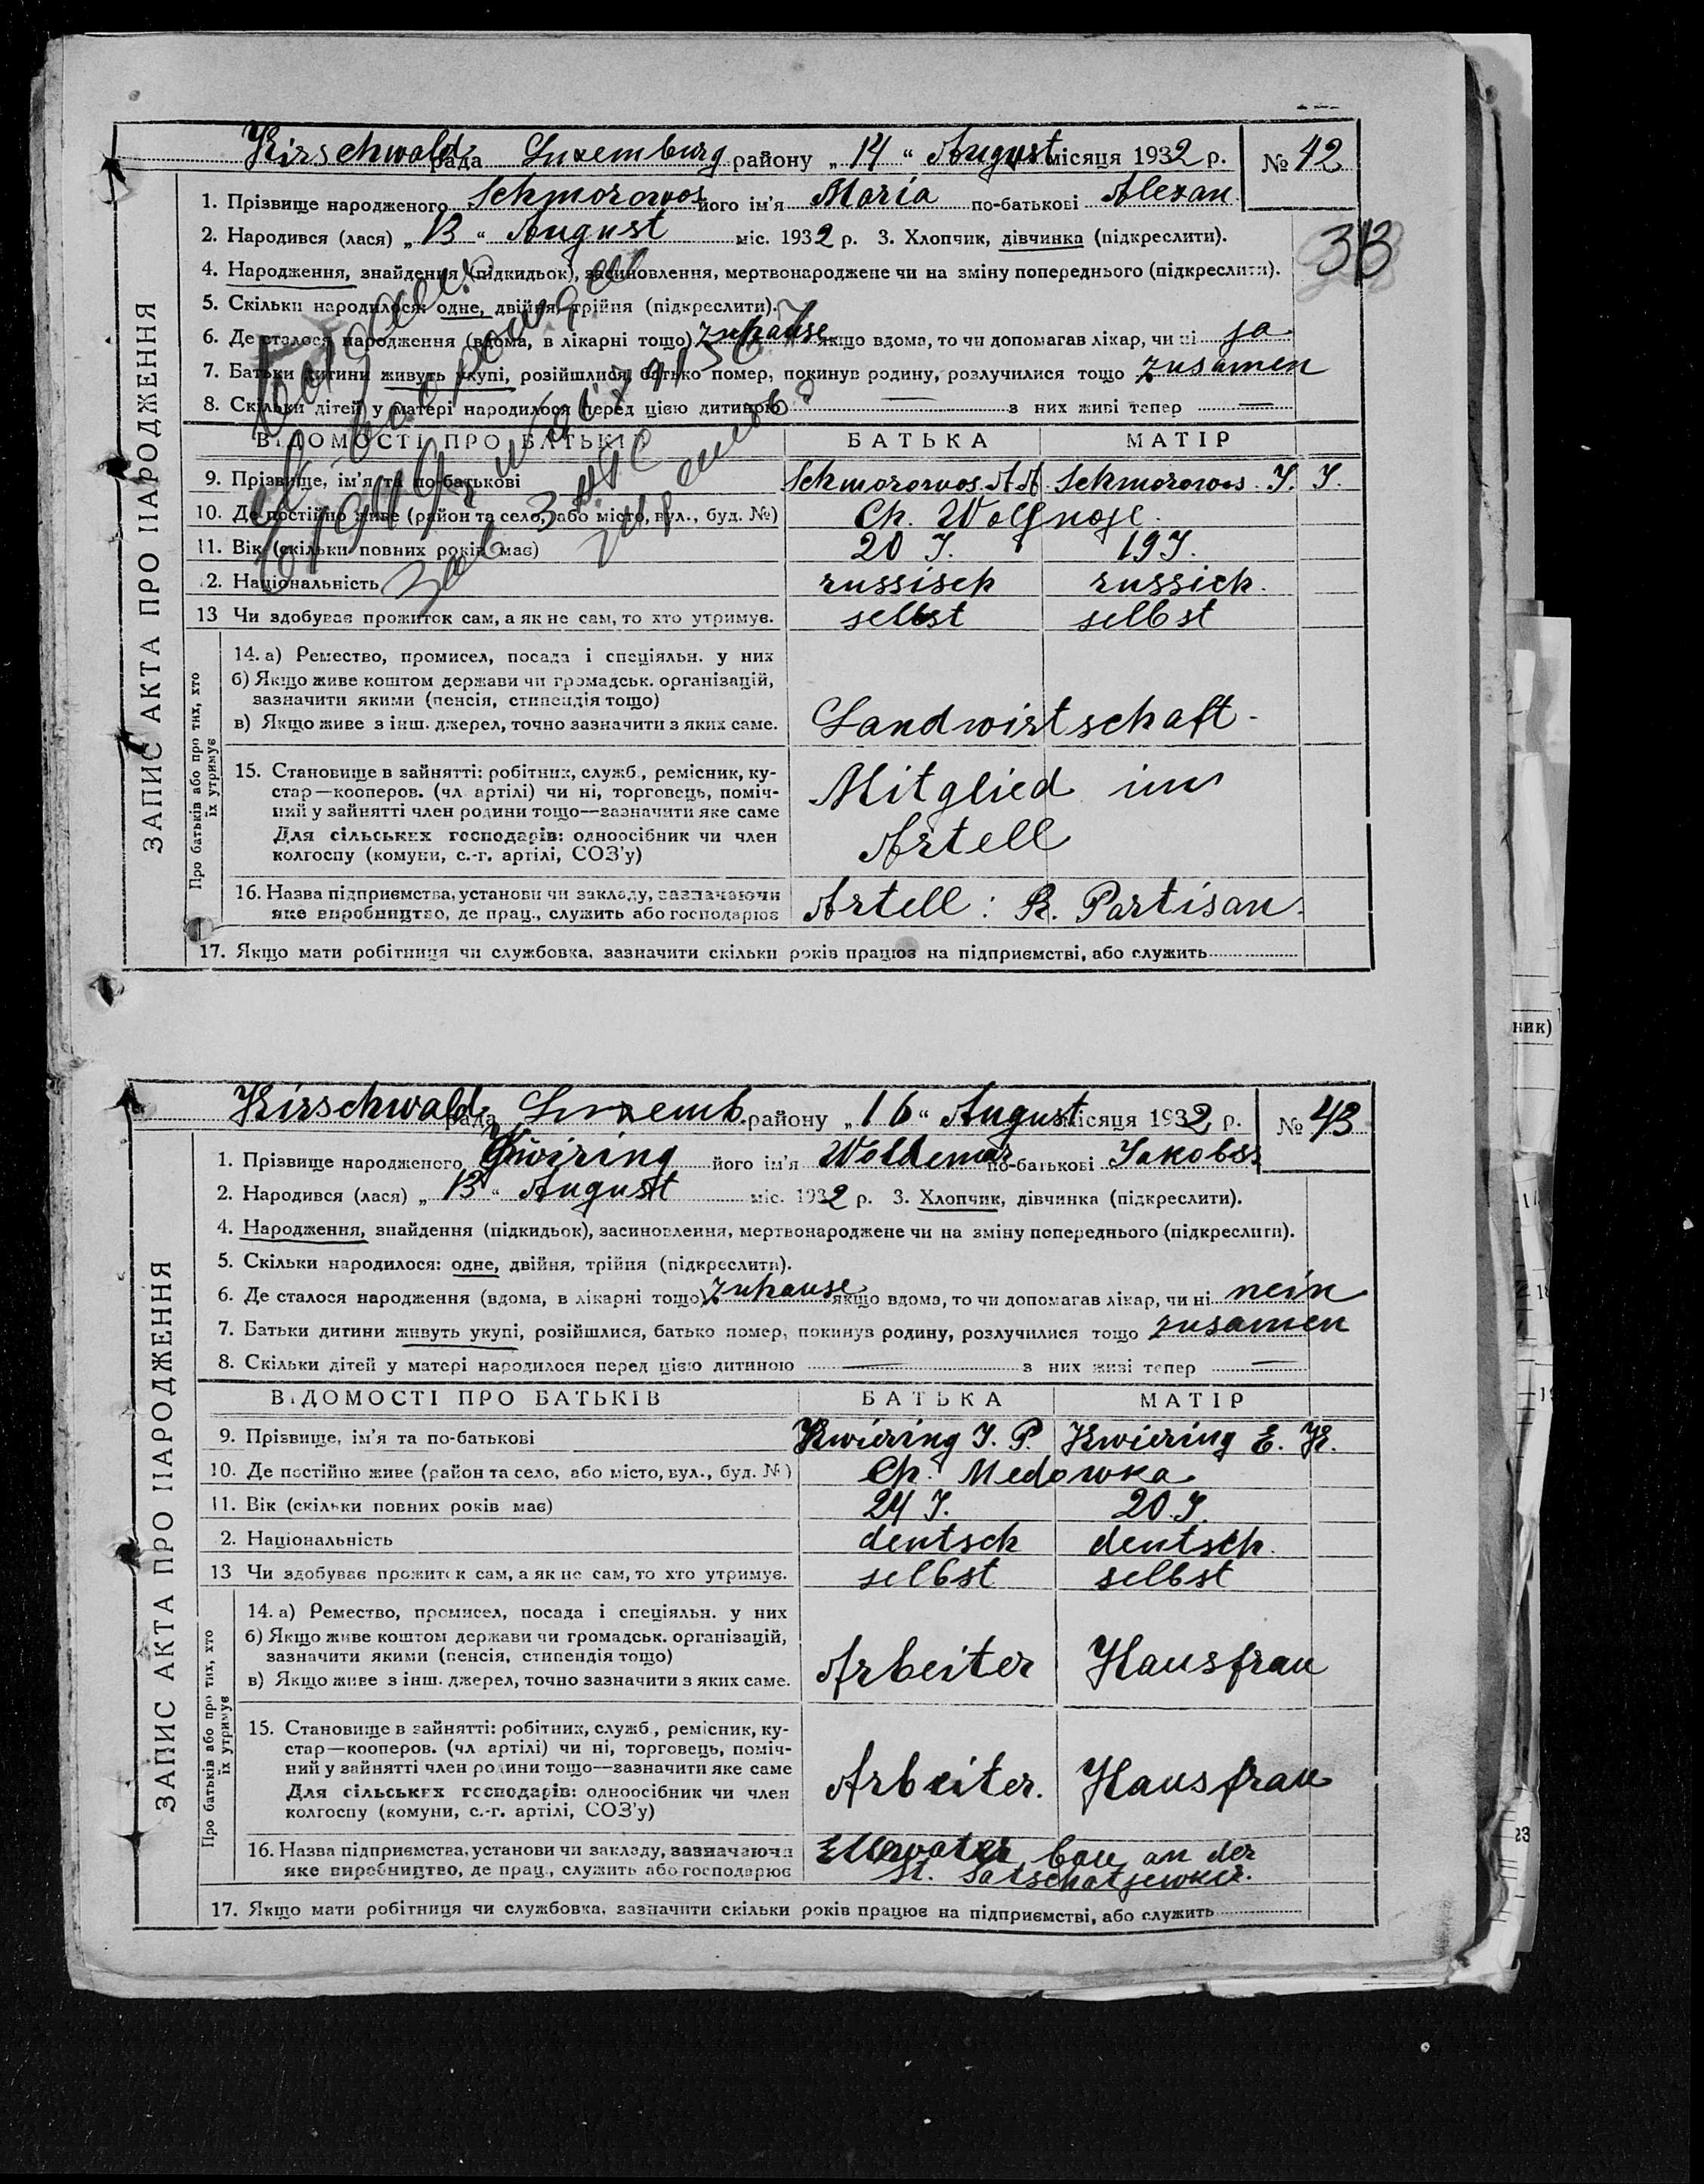 Kirschwald рада Luxemburg району „14“ August місяця 1932 р. № 42
1. Прізвище народженого Schmorowos його ім'я Maria по-батькові Alexan
2. Народився (лася) „13“ August міс. 1932 р. 3. Хлопчик, дівчинка (підкреслити).
313
4. Народження, знайдення (підкидьок), засиновлення, мертвонароджене чи на зміну попереднього (підкреслити).
5. Скільки народилося: одне, двійня, трійня (підкреслити).
6. Де сталося народження (вдома, в лікарні тощо) zuhause якщо вдома, то чи допомагав лікар, чи ні ja
7. Батьки дитини живуть укупі, розійшлися, батько помер, покинув родину, розлучилися тощо zusamen
8. Скільки дітей у матері народилося перед цією дитиною — з них живі тепер —
ВІДОМОСТІ ПРО БАТЬКІВ БАТЬКА МАТІР
9. Прізвище, ім'я та по-батькові Schmorowos A A. Schmorowos J. J.
10. Де постійно живе (район та село, або місто, вул., буд. №) Ch. Wolfnoje.
11. Вік (скільки повних років має) 20 J. 19 J.
2. Національність russisch russich.
13 Чи здобуває прожиток сам, а як не сам, то хто утримує. selbst selbst
14. а) Ремество, промисел, посада і спеціяльн. у них
б) Якщо живе коштом держави чи громадськ. організацій,
зазначити якими (пенсія, стипендія тощо)
в) Якщо живе з інш. джерел, точно зазначити з яких саме. Landwirtschaft.
15. Становище в зайнятті: робітник, служб., ремісник, ку-
стар—кооперов. (чл. артілі) чи ні, торговець, поміч-
ний у зайнятті член родини тощо—зазначити яке саме
Mitglied im
Для сільських господарів: одноосібник чи член
колгоспу (комуни, с.-г. артілі, СОЗ'у)
Artell
16. Назва підприємства, установи чи закладу, зазначаючи
яке виробництво, де прац., служить або господарює
Artell: R. Partisan.
17. Якщо мати робітниця чи службовка, зазначити скільки років працює на підприємстві, або служить
ЗАПИС АКТА ПРО НАРОДЖЕННЯ
Про батьків або про тих, хто
їх утримує
ник)
Kirschwald рада Luxemb. району „16“ August місяця 1932 р. № 43
1. Прізвище народженого Kwiring його ім'я Woldemar по-батькові Jakobs
2. Народився (лася) „13“ August міс. 1932 р. 3. Хлопчик, дівчинка (підкреслити).
4. Народження, знайдення (підкидьок), засиновлення, мертвонароджене чи на зміну попереднього (підкреслити).
5. Скільки народилося: одне, двійня, трійня (підкреслити).
6. Де сталося народження (вдома, в лікарні тощо) zuhause якщо вдома, то чи допомагав лікар, чи ні nein
7. Батьки дитини живуть укупі, розійшлися, батько помер, покинув родину, розлучилися тощо zusamen
8. Скільки дітей у матері народилося перед цією дитиною — з них живі тепер —
ВІДОМОСТІ ПРО БАТЬКІВ БАТЬКА МАТІР
9. Прізвище, ім'я та по-батькові Kwiering J. P. Kwiering E. K.
10. Де постійно живе (район та село, або місто, вул., буд. №) Ch. Medowka
11. Вік (скільки повних років має) 24 J. 20 J.
2. Національність deutsch deutsch.
13 Чи здобуває прожиток сам, а як не сам, то хто утримує. selbst selbst
14. а) Ремество, промисел, посада і спеціяльн. у них
б) Якщо живе коштом держави чи громадськ. організацій,
зазначити якими (пенсія, стипендія тощо)
в) Якщо живе з інш. джерел, точно зазначити з яких саме.
Arbeiter Hausfrau
15. Становище в зайнятті: робітник, служб., ремісник, ку-
стар—кооперов. (чл. артілі) чи ні, торговець, поміч-
ний у зайнятті член родини тощо—зазначити яке саме
Для сільських господарів: одноосібник чи член
колгоспу (комуни, с.-г. артілі, СОЗ'у)
Arbeiter. Hausfrau
16. Назва підприємства, установи чи закладу, зазначаючи
яке виробництво, де прац., служить або господарює
bau an der
St.
17. Якщо мати робітниця чи службовка, зазначити скільки років працює на підприємстві, або служить
ЗАПИС АКТА ПРО НАРОДЖЕННЯ
Про батьків або про тих, хто
їх утримує